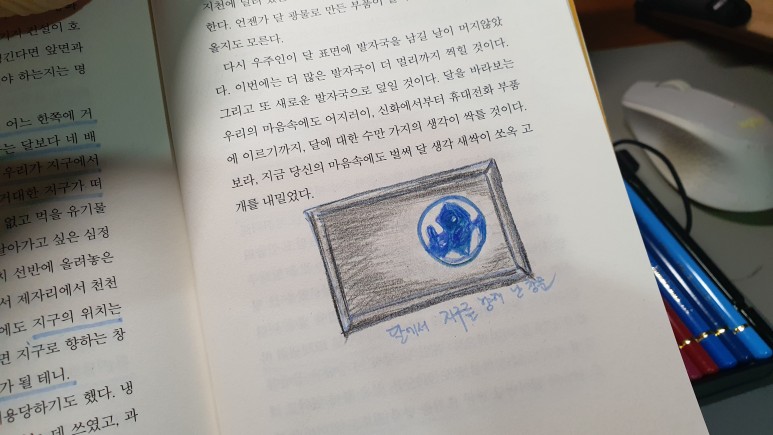 어느 한쪽에 거
는 달보다 네 배
우리가 지구에서
거대한 지구가 떠
없고 먹을 유기물
날아가고 싶은 심정
선반에 올려놓은
서 제자리에서 천천
에도 지구의 위치는
면 지구로 향하는 창
가 될 테니.
용당하기도 했다. 냉
데 쓰였고, 과
한다. 언젠가 달 광물로 만든 부품이
올지도 모른다.
다시 우주인이 달 표면에 발자국을 남길 날이 머지않았
다. 이번에는 더 많은 발자국이 더 멀리까지 찍힐 것이다.
그리고 또 새로운 발자국으로 덮일 것이다. 달을 바라보는
우리의 마음속에도 어지러이, 신화에서부터 휴대전화 부품
에 이르기까지, 달에 대한 수만 가지의 생각이 싹틀 것이다.
보라, 지금 당신의 마음속에도 벌써 달 생각 새싹이 쏘옥 고
개를 내밀었다.
달에서 지구를 향해 난 창문